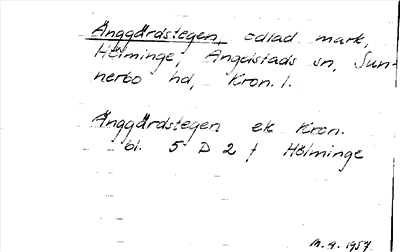 Änggärdstegen, odlad mark,
Hölminge, Angelstads sn, Sun-
nerbo hd, Kron. l.
Änggärdstegen ek Kron.
bl. 5 D 2 f Hölminge
M.A. 1957